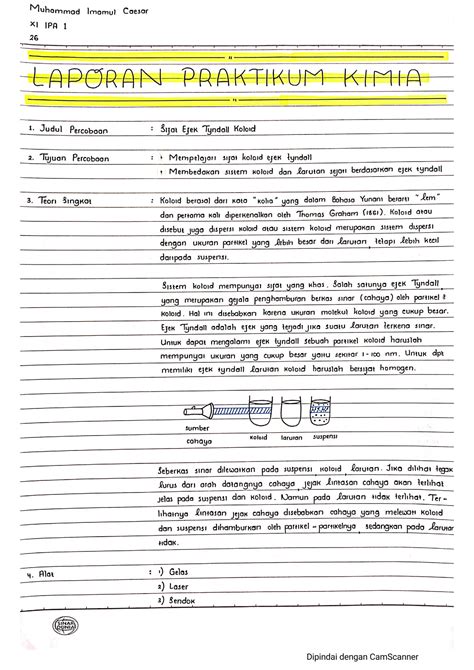 Muhammad Imamul Caesar
XI IPA 1
26
LAPORAN PRAKTIKUM KIMIA
1. Judul Percobaan : Sifat Efek Tyndall Koloid
2. Tujuan Percobaan : • Mempelajari sifat koloid efek tyndall
• Membedakan sistem koloid dan larutan sejati berdasarkan efek tyndall
3. Teori Singkat : Koloid berasal dari kata "kolia" yang dalam Bahasa Yunani berarti "lem"
dan pertama kali diperkenalkan oleh Thomas Graham (1861). Koloid atau
disebut juga dispersi koloid atau sistem koloid merupakan sistem dispersi
dengan ukuran partikel yang lebih besar dari larutan, tetapi lebih kecil
daripada suspensi.
Sistem koloid mempunyai sifat yang khas. Salah satunya efek Tyndall
yang merupakan gejala penghamburan berkas sinar (cahaya) oleh partikel2
koloid. Hal ini disebabkan karena ukuran molekul koloid yang cukup besar.
Efek Tyndall adalah efek yang terjadi jika suatu larutan terkena sinar.
Untuk dapat mengalami efek tyndall sebuah partikel koloid haruslah
mempunyai ukuran yang cukup besar yaitu sekitar 1-100 nm. Untuk dpt
memiliki efek tyndall larutan koloid haruslah bersifat homogen.
sumber
cahaya
koloid larutan suspensi
Seberkas sinar dilewatkan pada suspensi koloid, larutan. Jika dilihat tegak
lurus dari arah datangnya cahaya, jejak lintasan cahaya akan terlihat
jelas pada suspensi dan koloid. Namun pada larutan tidak terlihat. Ter-
lihatnya lintasan jejak cahaya disebabkan cahaya yang melewati koloid
dan suspensi dihamburkan oleh partikel-partikelnya, sedangkan pada larutan
tidak.
4. Alat : 1) Gelas
2) Laser
3) Sendok
SINAR
DUNIA
Dipindai dengan CamScanner